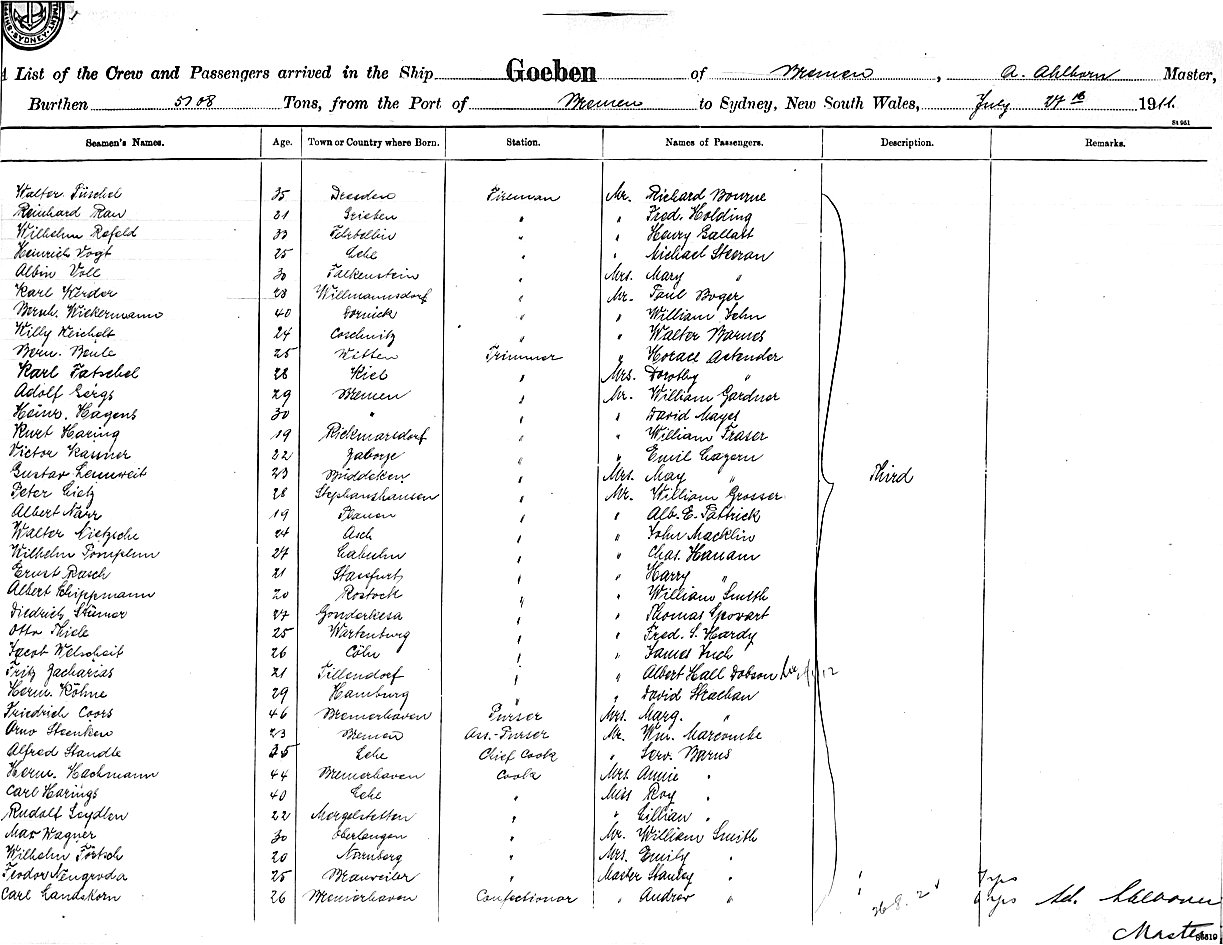 SYDNEY
A List of the Crew and Passengers arrived in the Ship Goeben of Bremen, A. Ahlborn Master,
Burthen 5708 Tons, from the Port of Bremen to Sydney, New South Wales, July 27th 191
St 961
Seamen's Names. Age. Town or Country where Born. Station. Names of Passengers. Description. Remarks.
Walter Püschel 35 Dresden Fireman Mr. Richard Bourne
Reinhard Rau 21 Grieben " " Fred. Holding
Wilhelm Refeld 33 Fehrbellin " " Henry Gallast
Heinrich Vogt 25 Lehe " " Michael Steoran
Albin Voll 30 Falkenstein " Mrs. Mary "
Karl Kerder 28 Willmannsdorf " Mr. Paul Boger
Bernh. Wiekermann 40 Bornick " " William John
Willy Reichelt 24 Coschnitz " " Walter Barnes
Bern. Beule 25 Witten Trimmer " Horace Astender
Karl Fatschel 28 Kiel " Mrs. Dorothy "
Adolf Gergs 29 Bremen " Mr. William Gardner
Heinr. Hagens 30 " " " David Mayes
Kurt Haring 19 Rickmarsdorf " " William Fraser
Victor Kassner 22 Zaborze " " Emil Cazern
Gustav Lenuweit 23 Middeken " Mrs. May "
Peter Lietz 28 Stephanshausen " Mr. William Grosser
Albert Narr 19 Plauen " " Alb. E. Pattrick Third
Walter Nietzsche 24 Asch " " John Macklin
Wilhelm Pomplun 27 Labuhn " " Chas. Hanam
Ernst Rasch 21 Stassfurt " " Harry "
Albert Schippmann 20 Rostock " " William Smith
Diedrich Stümer 27 " " Thomas Spovart
Otto Thiele 25 Wartenburg " " Fred. S. Hardy
Jacob Welscheit 26 Cöln " " James Inch
Fritz Zacharias 21 Tillendorf " " Albert Hall Dobson
Herm. Köhne 29 Hamburg " " David Strachan
Friedrich Coors 46 Bremerhaven Purser Mrs. Marg. "
Arno Steenken 23 Bremen Ass.-Purser Mr. Wm. Marcombe
Alfred Standle 35 Lehe Chief Cook " Serv. Barns
Herm. Hachmann 44 Bremerhaven Cook Mrs. Annie "
Carl Harings 40 Lehe " Miss Roy "
Rudolf Seydlen 22 Mergelstetten " " Lillian "
Max Wagner 30 Oberlangen " Mr. William Smith
Wilhelm Förtsch 20 Nürnberg " Mrs. Emily "
Teodor Nengroda 25 Brauweiler " Master Stanley " " 7 yrs
Carl Landskorn 26 Bremerhaven Confectionor " Andrew " " 6 yrs
Master